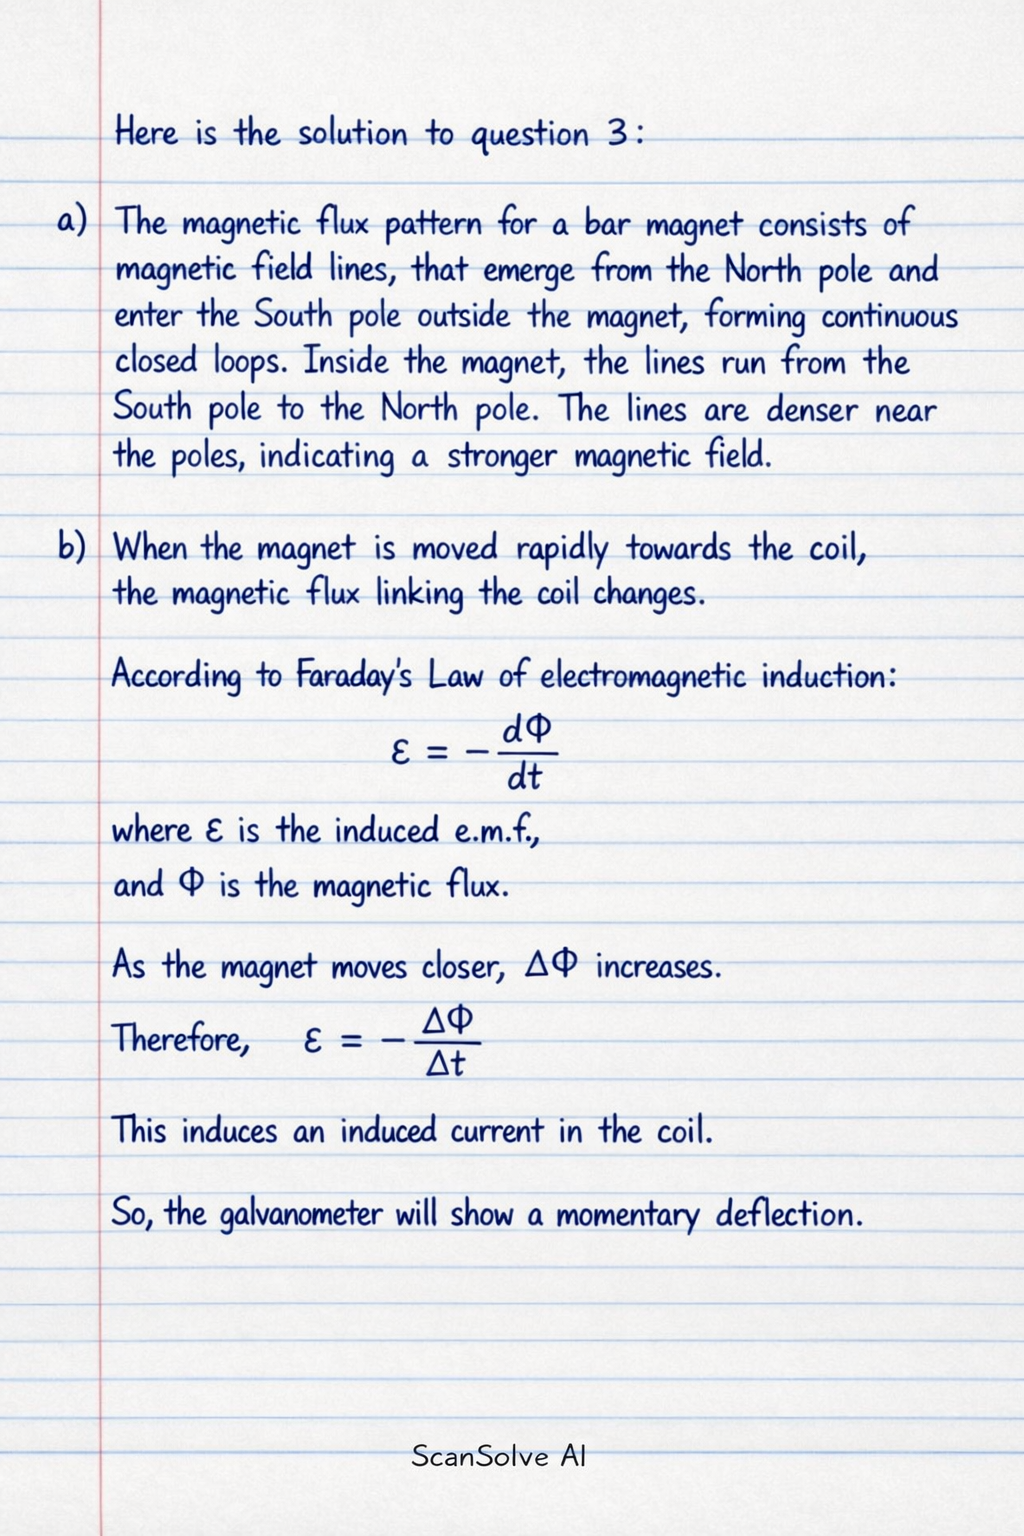 Here is the solution to question 3:
a) The magnetic flux pattern for a bar magnet consists of
magnetic field lines, that emerge from the North pole and
enter the South pole outside the magnet, forming continuous
closed loops. Inside the magnet, the lines run from the
South pole to the North pole. The lines are denser near
the poles, indicating a stronger magnetic field.
b) When the magnet is moved rapidly towards the coil,
the magnetic flux linking the coil changes.
According to Faraday's Law of electromagnetic induction:
ε = - dΦ/dt
where ε is the induced e.m.f.,
and Φ is the magnetic flux.
As the magnet moves closer, ΔΦ increases.
Therefore, ε = - ΔΦ/Δt
This induces an induced current in the coil.
So, the galvanometer will show a momentary deflection.
ScanSolve AI